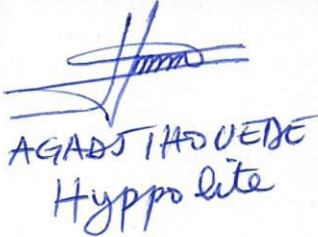 AGADJIHOUEDE
Hyppolite